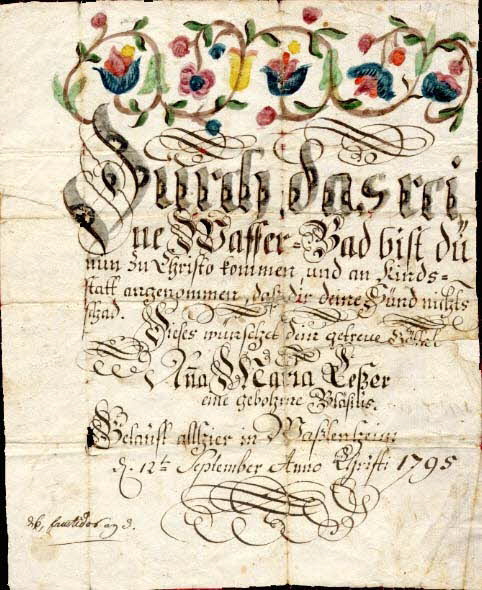 Durch das rei,,
ne Wasser-Bad bist du
nun zu Christo kommen, und an Kinds=
statt angenommen, daß dir deine Sünd nichts
schad.
Dieses wünschet dein getreue
Anna Maria
eine gebohrne
Getauft allhier in
d. 12ten September Anno Christi 1795